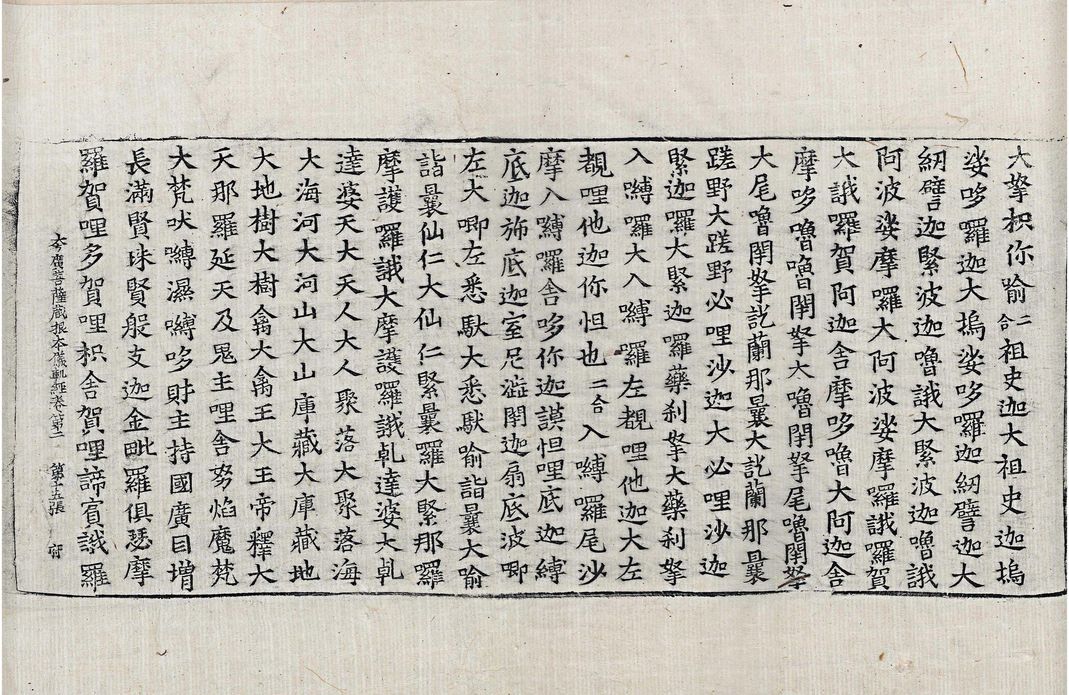 大拏枳你喻二合祖史迦大祖史迦塢
娑哆囉迦大塢娑哆囉迦紉譬迦大
紉譬迦緊波迦嚕誐大緊波迦嚕誐
阿波娑摩囉大阿波娑摩囉誐囉賀
大誐囉賀阿迦舍摩哆嚕大阿迦舍
摩哆嚕嚕閉拏大嚕閉拏尾嚕閉拏
大尾嚕閉拏訖蘭那曩大訖蘭那曩
蹉野大蹉野必哩沙迦大必哩沙迦
緊迦囉大緊迦囉藥剎拏大藥剎拏
入嚩囉大入嚩囉左覩哩他迦大左
覩哩他迦你怛也二合入嚩囉尾沙
摩入嚩囉舍哆你迦謨怛哩底迦嚩
底迦旆底迦室左閉迦扇底波唧
左大唧左悉馱大悉馱喻詣曩大喻
詣曩仙仁大仙仁緊曩囉大緊那囉
摩護囉誐大摩護囉誐乹達婆大乹
達婆天大天人大人聚落大聚落海
大海河大河山大山庫藏大庫藏地
大地樹大樹禽大禽王大王帝釋大
天那羅延天及鬼主哩舍努焰魔梵
大梵吠嚩濕嚩哆財主持國廣目增
長滿賢珠賢般支迦金毗羅俱瑟摩
羅賀哩多賀哩枳舍賀哩諦賓誐羅
大方廣菩薩藏根本儀軌經卷第二 第十五張 府